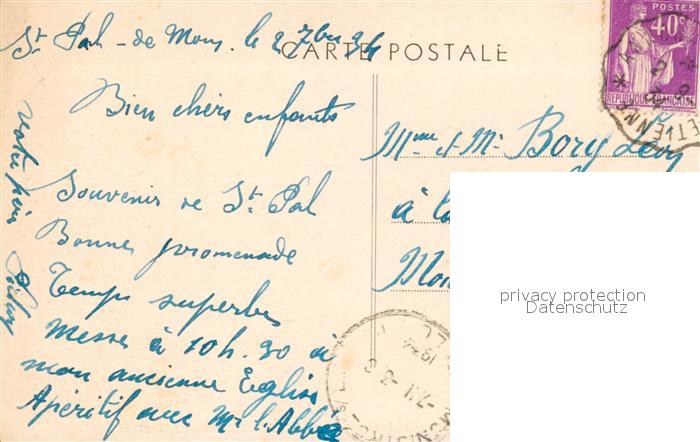 St Pal - de Mons. le 2 7bre 34
CARTE POSTALE
POSTES
40c
REPUBLIQUE FRANÇAISE
ETIENNE *
Bien chers enfants
Mme et Mr Bory
à
Souvenir de St. Pal
Bonne promenade
Temps superbe
Messe à 10h. 30 à
mon ancienne Eglise
Apéritif avec Mr l'Abbé
votre père
privacy protection
Datenschutz